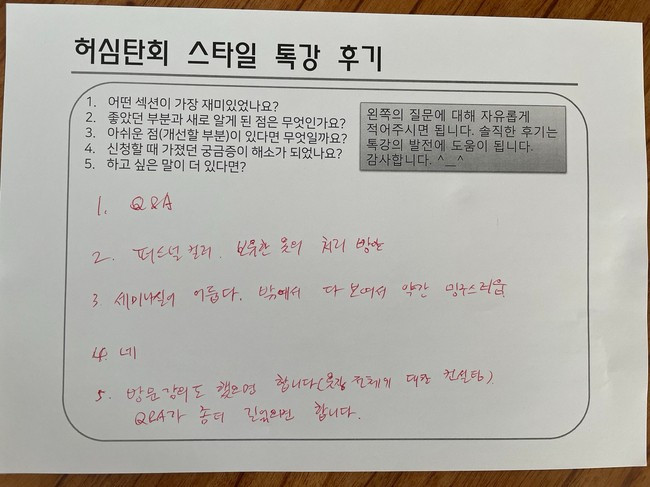 허심탄회 스타일 특강 후기
1. 어떤 섹션이 가장 재미있었나요?
2. 좋았던 부분과 새로 알게 된 점은 무엇인가요?
3. 아쉬운 점(개선할 부분)이 있다면 무엇일까요?
4. 신청할 때 가졌던 궁금증이 해소가 되었나요?
5. 하고 싶은 말이 더 있다면?
왼쪽의 질문에 대해 자유롭게
적어주시면 됩니다. 솔직한 후기는
특강의 발전에 도움이 됩니다.
감사합니다. ^__^
1. Q&A
2. 퍼스널 컬러. 보유한 옷의 처리 방안
3. 세미나실이 어둡다. 밖에서 다 보여서 약간
4. 네
5. 방문강의도 했으면 합니다(옷장 전체에 대한 컨설팅).
Q&A가 좀더 길었으면 합니다.